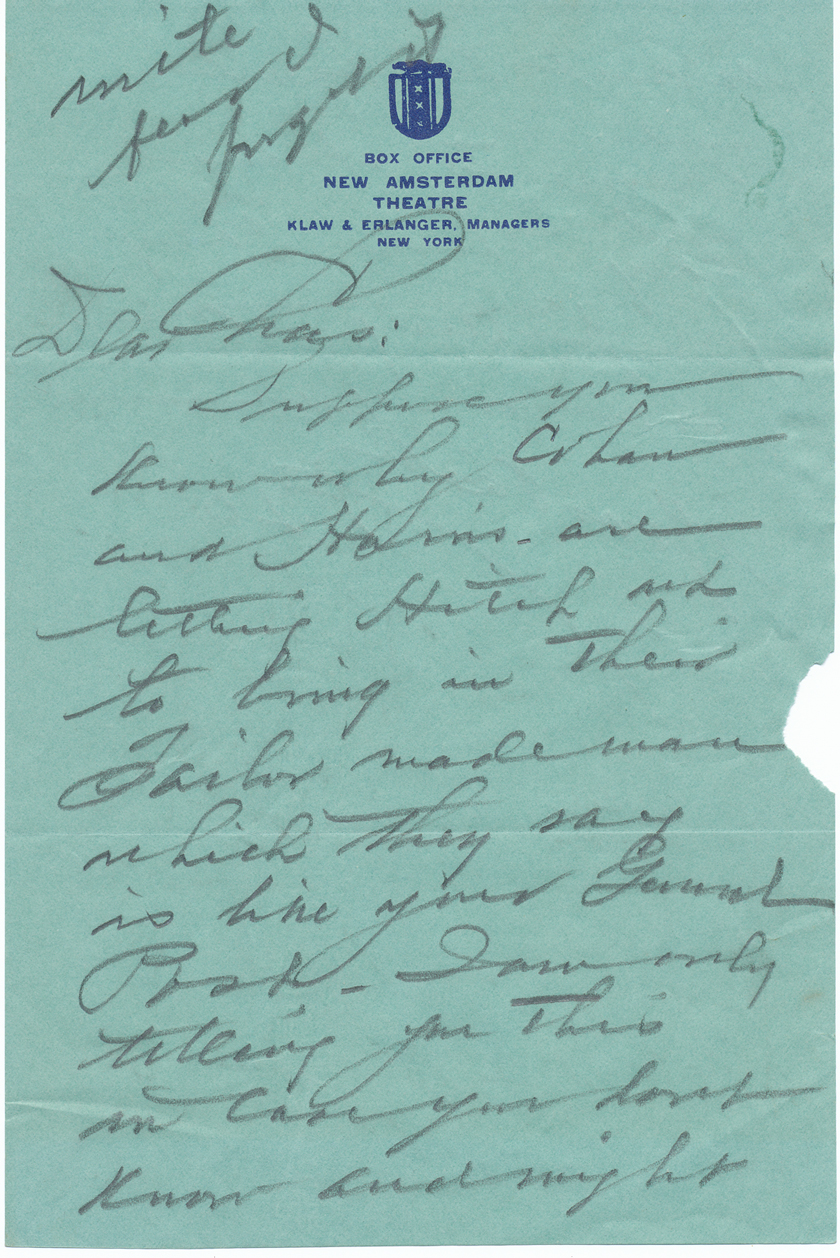 write I
fear I
forget it
BOX OFFICE
NEW AMSTERDAM
THEATRE
KLAW & ERLANGER, MANAGERS
NEW YORK
Dear Chas:
Suppose you
know why Cohan
and Harris - are
letting Hitch
to bring in their
Tailor made man
which they say
is like your General
Post - I am only
telling you this
in case you dont
know and might